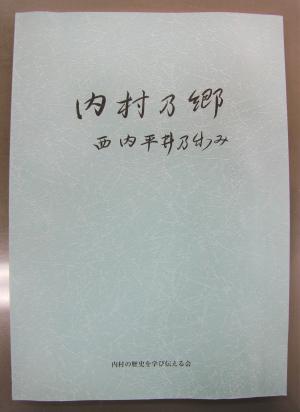 内村乃郷
西内平井乃歩み
内村の歴史を学び伝える会